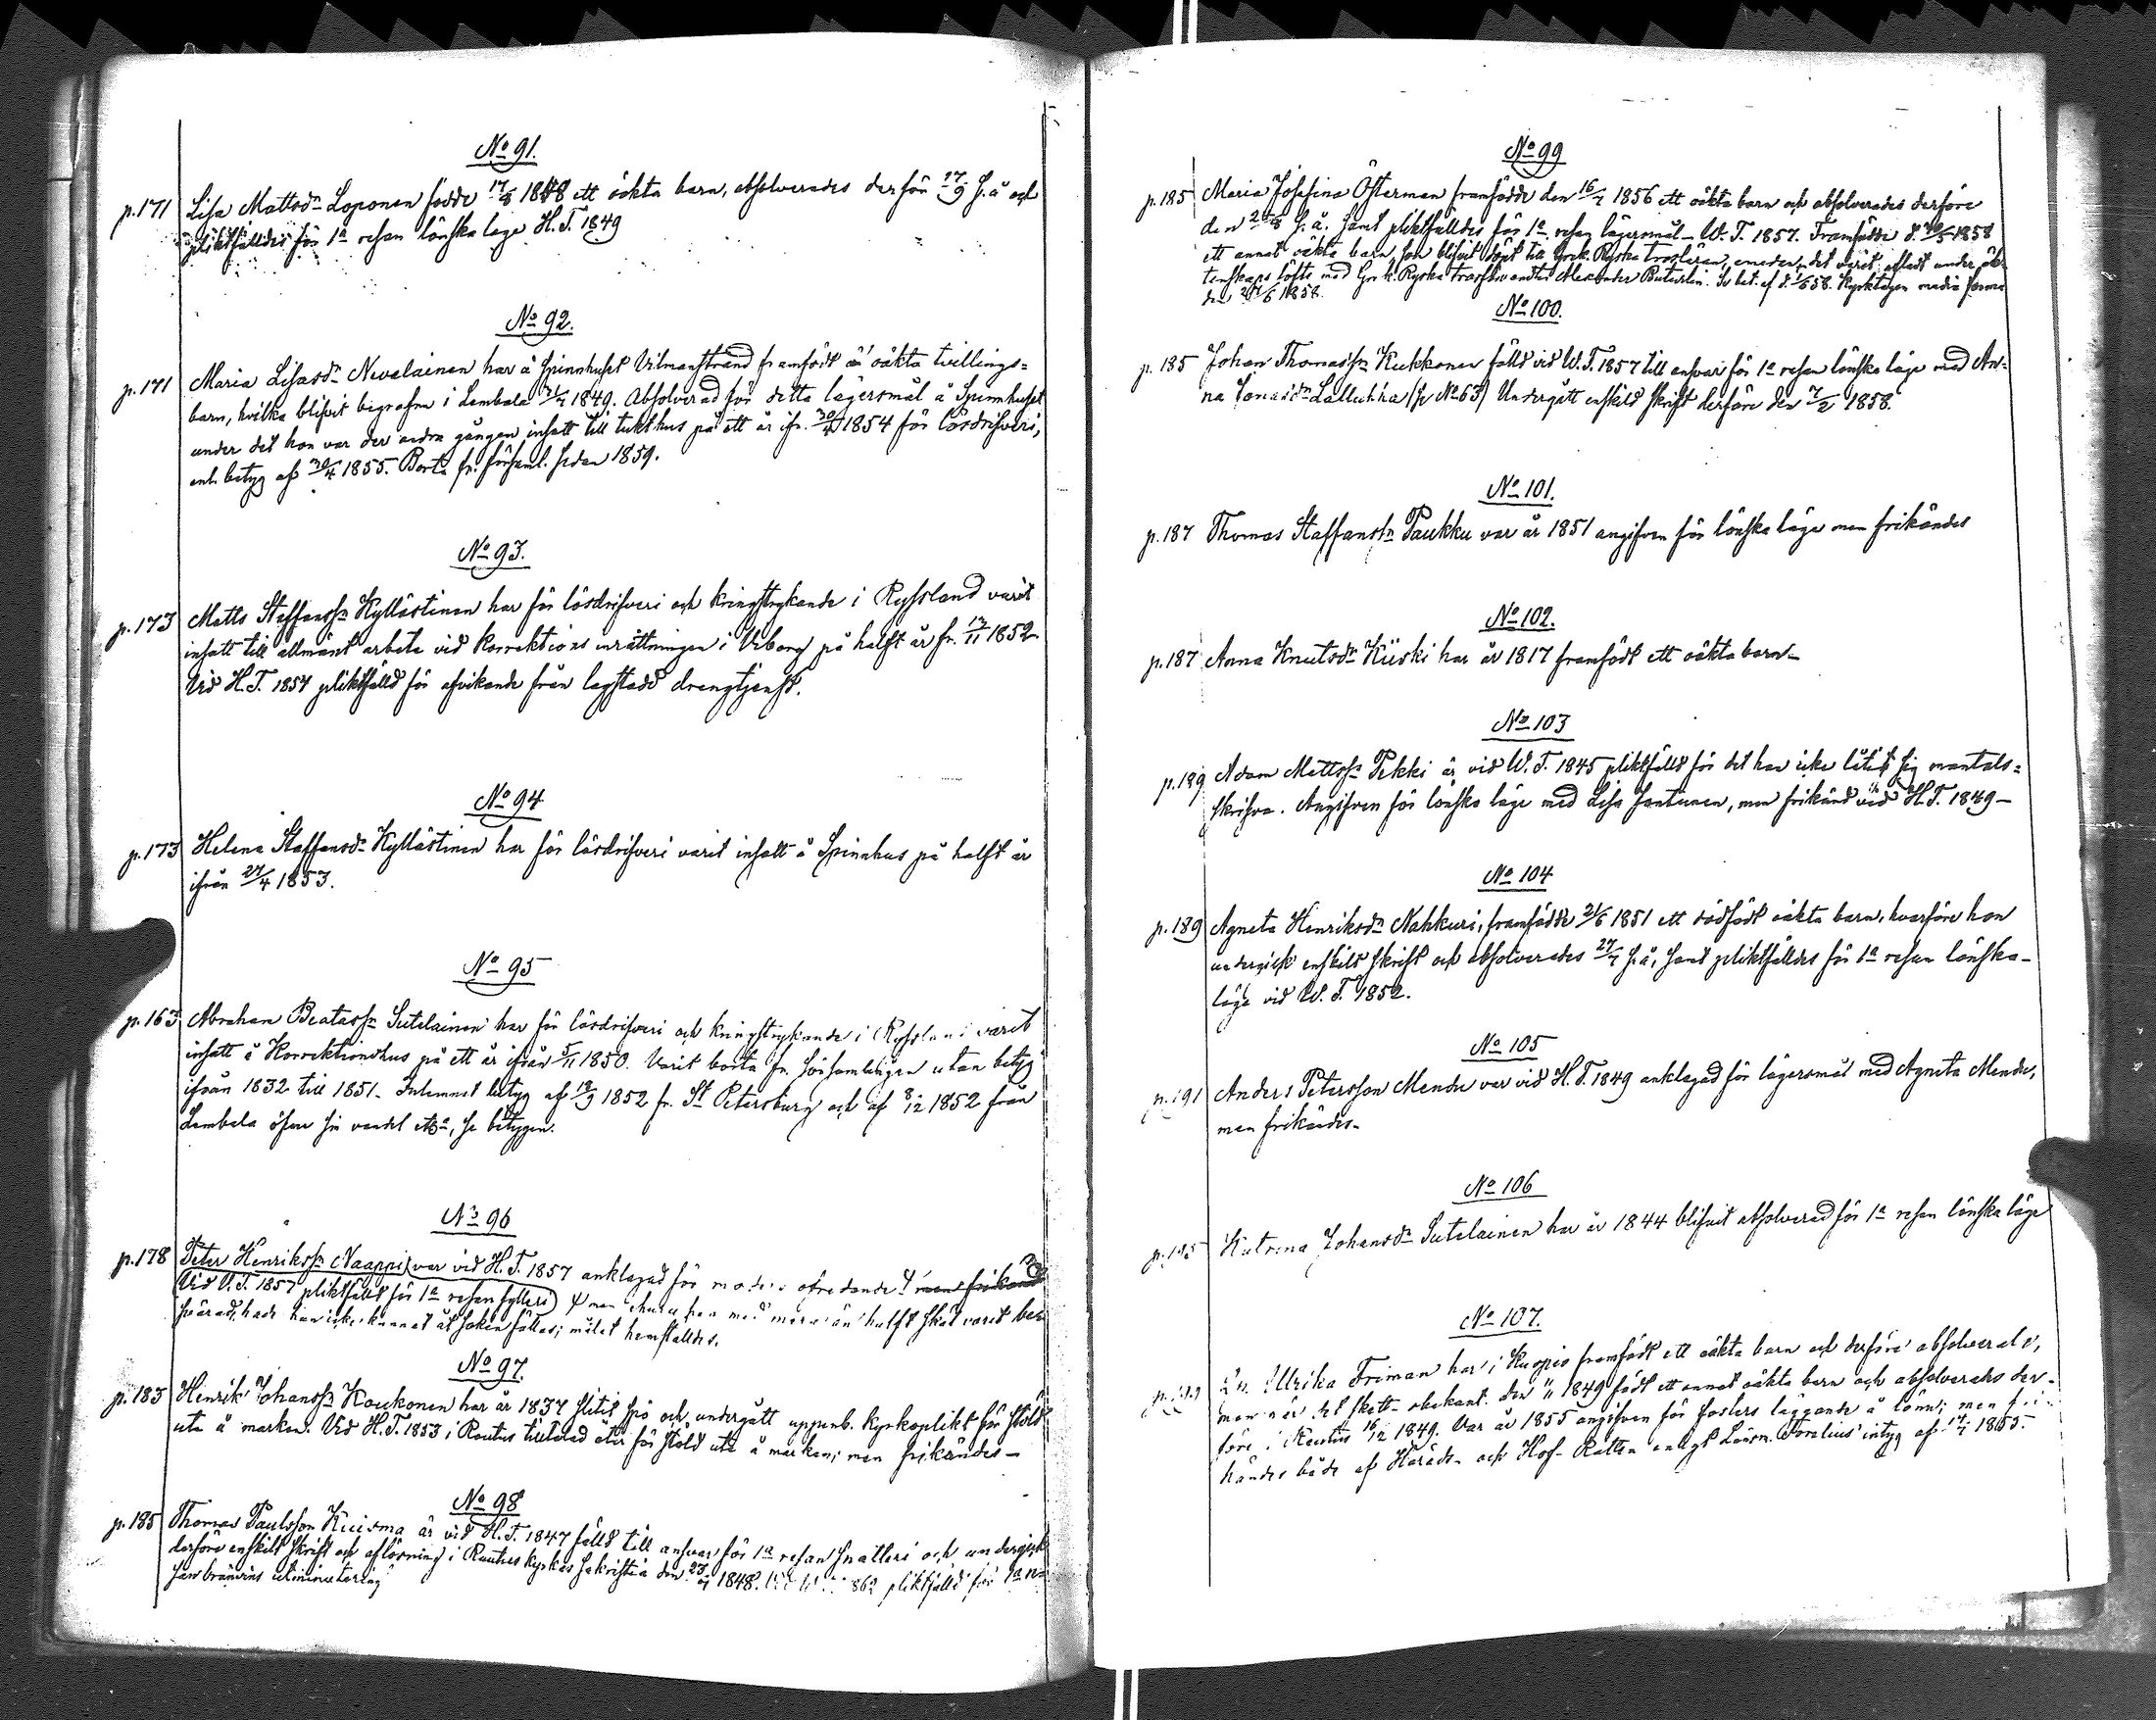 No 91.
p.171 Lisa Mattsdr Loponen födde 17/8 1848 ett oäkta barn, absolverades derför 17/9 s. å och
pliktfälldes för 1a resan lönska läge H.T. 1849
No 92.
p.171 Maria Lisasdr Nevalainen har å Spinnhuset Vilmanstrand framfödt oäkta tvillings=
barn, hvilka blifvit begrafna i Lembala 1849. Absolverad för detta lägersmål å Spinnhuset
under det hon var der andra gången insatt till tukthus på ett år ifr. 30/4 1854 för lösdrifveri,
enl. betyg af 30/4 1855. Borta fr. församl. sedan 1859.
No 93.
p.173 Matts Staffanssn Kyllästinen har för lösdrifveri och kringstrykande i Ryssland varit
insatt till allmänt arbete vid korrektions inrättningen i Viborg på halft år fr. 13/11 1852
Vid H.T. 1857 pliktfälld för afvikande från lagstadd drengtjenst.
No 94.
p.173 Helena Staffansdr Kyllästinen har för lösdrifveri varit insatt å Spinnhus på halft år
ifrån 27/4 1853.
No 95
p.163 Abraham Beatassn Sutelainen har för lösdrifveri och kringstrykande i Ryssland varit
insatt å Korrektionshus på ett år ifrån 5/11 1850. Varit borta fr. församlingen utan betyg
ifrån 1832 till 1851. Inlemnat betyg af 18/9 1852 fr. St Petersburg och af 8/12 1852 från
Lembala öfver sin vandel etc, se betygen.
No 96
p.178 Peter Henrikssn Naappi, var vid H.T. 1857 anklagad för moders ofredande men frikänd
Vid V.T. 1857 pliktfälld för 1a resan fylleri) men ehuru han med mera än halft skäl varit be=
svärad, hade han icke kunnat åt saken fällas; målet hemstäldes.
No 97.
p.183 Henrik Johanssn Koukonen har år 1837 slitit spö och undergått uppenb. kyrkoplikt för stöld
ute å marken. Vid H.T. 1853 i Rautus tilltalad åter för stöld ute å marken; men frikändes—
No 98
p.185 Thomas Paulsson Kuisma är vid H.T. 1847 fälld till ansvar för 1a resan snatteri och undergick
derföre enskilt skrift och aflösning i Rautus kyrkas sakristia den 23/ 1848. pliktfälld för
bränvins
No 99
p.185 Maria Josefina Österman framfödde den 16/7 1856 ett oäkta barn och absolverades derföre
den s. å. samt pliktfälldes för 1a resan lägersmål W.T. 1857. Framfödde d. 1858
ett annat oäkta barn, som blifvit döpt till Grek. Ryska trosläran, emedan det varit afladt under äk=
tenskaps löfte med Grek. Ryska trosförvandten Alexander Buturlin. Se bet. af d. 1/6 58. Kyrktagen
den 24/6 1858.
No 100.
p.185 Johan Thomassn Kukkonen fälld vid W.T. 1857 till ansvar för 1a resan lönska läge med An=
na Lallukka (se No 63) Undergått enskild skrift derföre den 7/2 1858.
No 101.
p.187 Thomas Staffanssn Paukku var år 1851 angifven för lönska läge men frikändes
No 102.
p.187 Anna Knutsdr Kiiski har år 1817 framfödt ett oäkta barn—
No 103
p.189 Adam Mattssn Pekki är vid W.T. 1845 pliktfälld för det han icke låtit sig mantals=
skrifva. Angifven för lönska läge med Lisa Hantunen, men frikänd vid H.T. 1849—
No 104
p.189 Agneta Henriksdr Nahkuri, framfödde 21/6 1851 ett dödfödt oäkta barn, hvarföre hon
undergick enskilt skrift och absolverades 27/7 s. å, samt pliktfälldes för 1a resan lönska-
läge vid W.T. 1852.
No 105
p.191 Anders Petersson Mende var vid H.T. 1849 anklagad för lägersmål med Agneta Mende,
men frikändes—
No 106
Katrina Johansdr Sutelainen har år 1844 blifvit absolverad för 1a resan lönska läge
No 107.
Ulrika Friman har i Kuopio framfödt ett oäkta barn och derföre absolverats,
men när det skett obekant. den 1849 födt ett annat oäkta barn och absolverats der-
före i Rautus 16/12 1849. Var år 1855 angifven för fosters läggande å lönn; men fri=
kändes både af Härads- och Hof-Rätten enligt Länsm. Forelius' intyg af 17/7 1855.